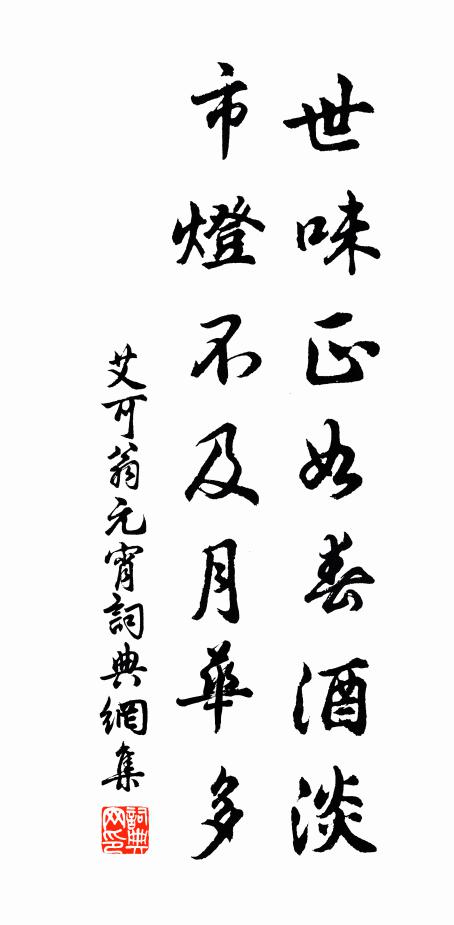 世味正如春酒淡
市燈不及月華多
艾可翁元宵詞典網集
詞典
网印